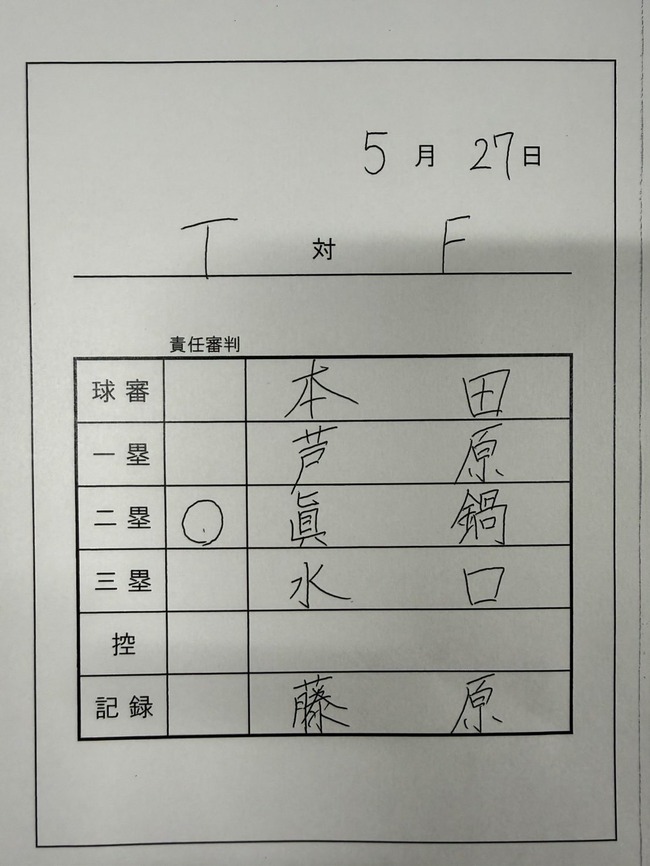 5 月 27 日
T 対 F
責任審判
球審 本田
一塁 芦原
二塁 ○ 眞鍋
三塁 水口
控
記録 藤原